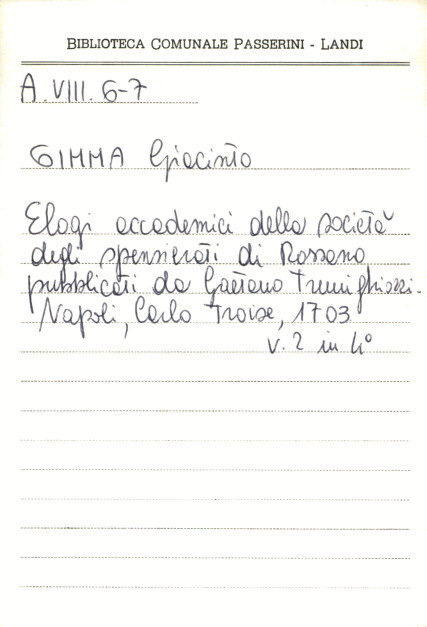 BIBLIOTECA COMUNALE PASSERINI - LANDI
A.VIII.6-7
GIMMA Giacinto
Elogi accademici della società
degli spensierati di Rossano
pubblicati da Gaetano Tremighiozzi.
Napoli, Carlo Troise, 1703
v. 2 in 4°